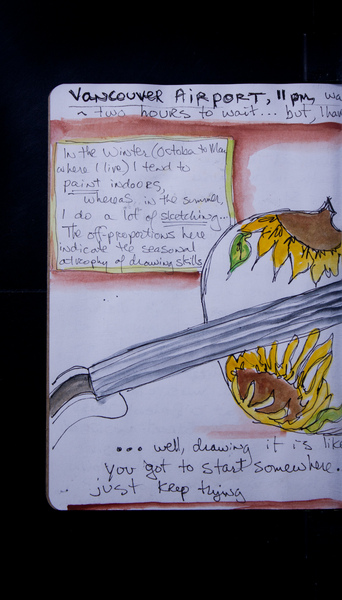 VANCOUVER AIRPORT, 11 pm, wa
~ two hours to wait... but, I have
In the Winter (October to May
where I live) I tend to
paint indoors,
whereas, in the summer,
I do a lot of sketching...
The off-proportions here
indicate the seasonal
atrophy of drawing skills
... well, drawing it is like
you got to start somewhere.
just keep trying